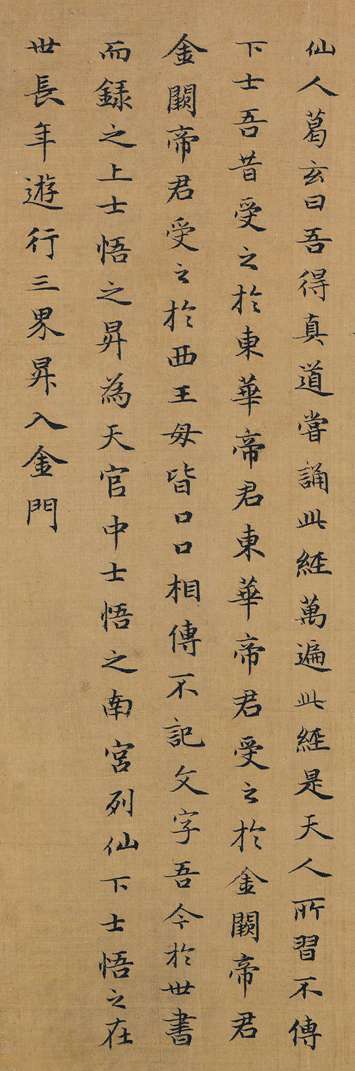 仙人葛玄曰吾得真道嘗誦此經萬遍此經是天人所習不傳
下士吾昔受之於東華帝君東華帝君受之於金闕帝君
金闕帝君受之於西王毋皆口口相傳不記文字吾今於世書
而録之上士悟之昇為天官中士悟之南宮列仙下士悟之在
世長年遊行三界昇入金門